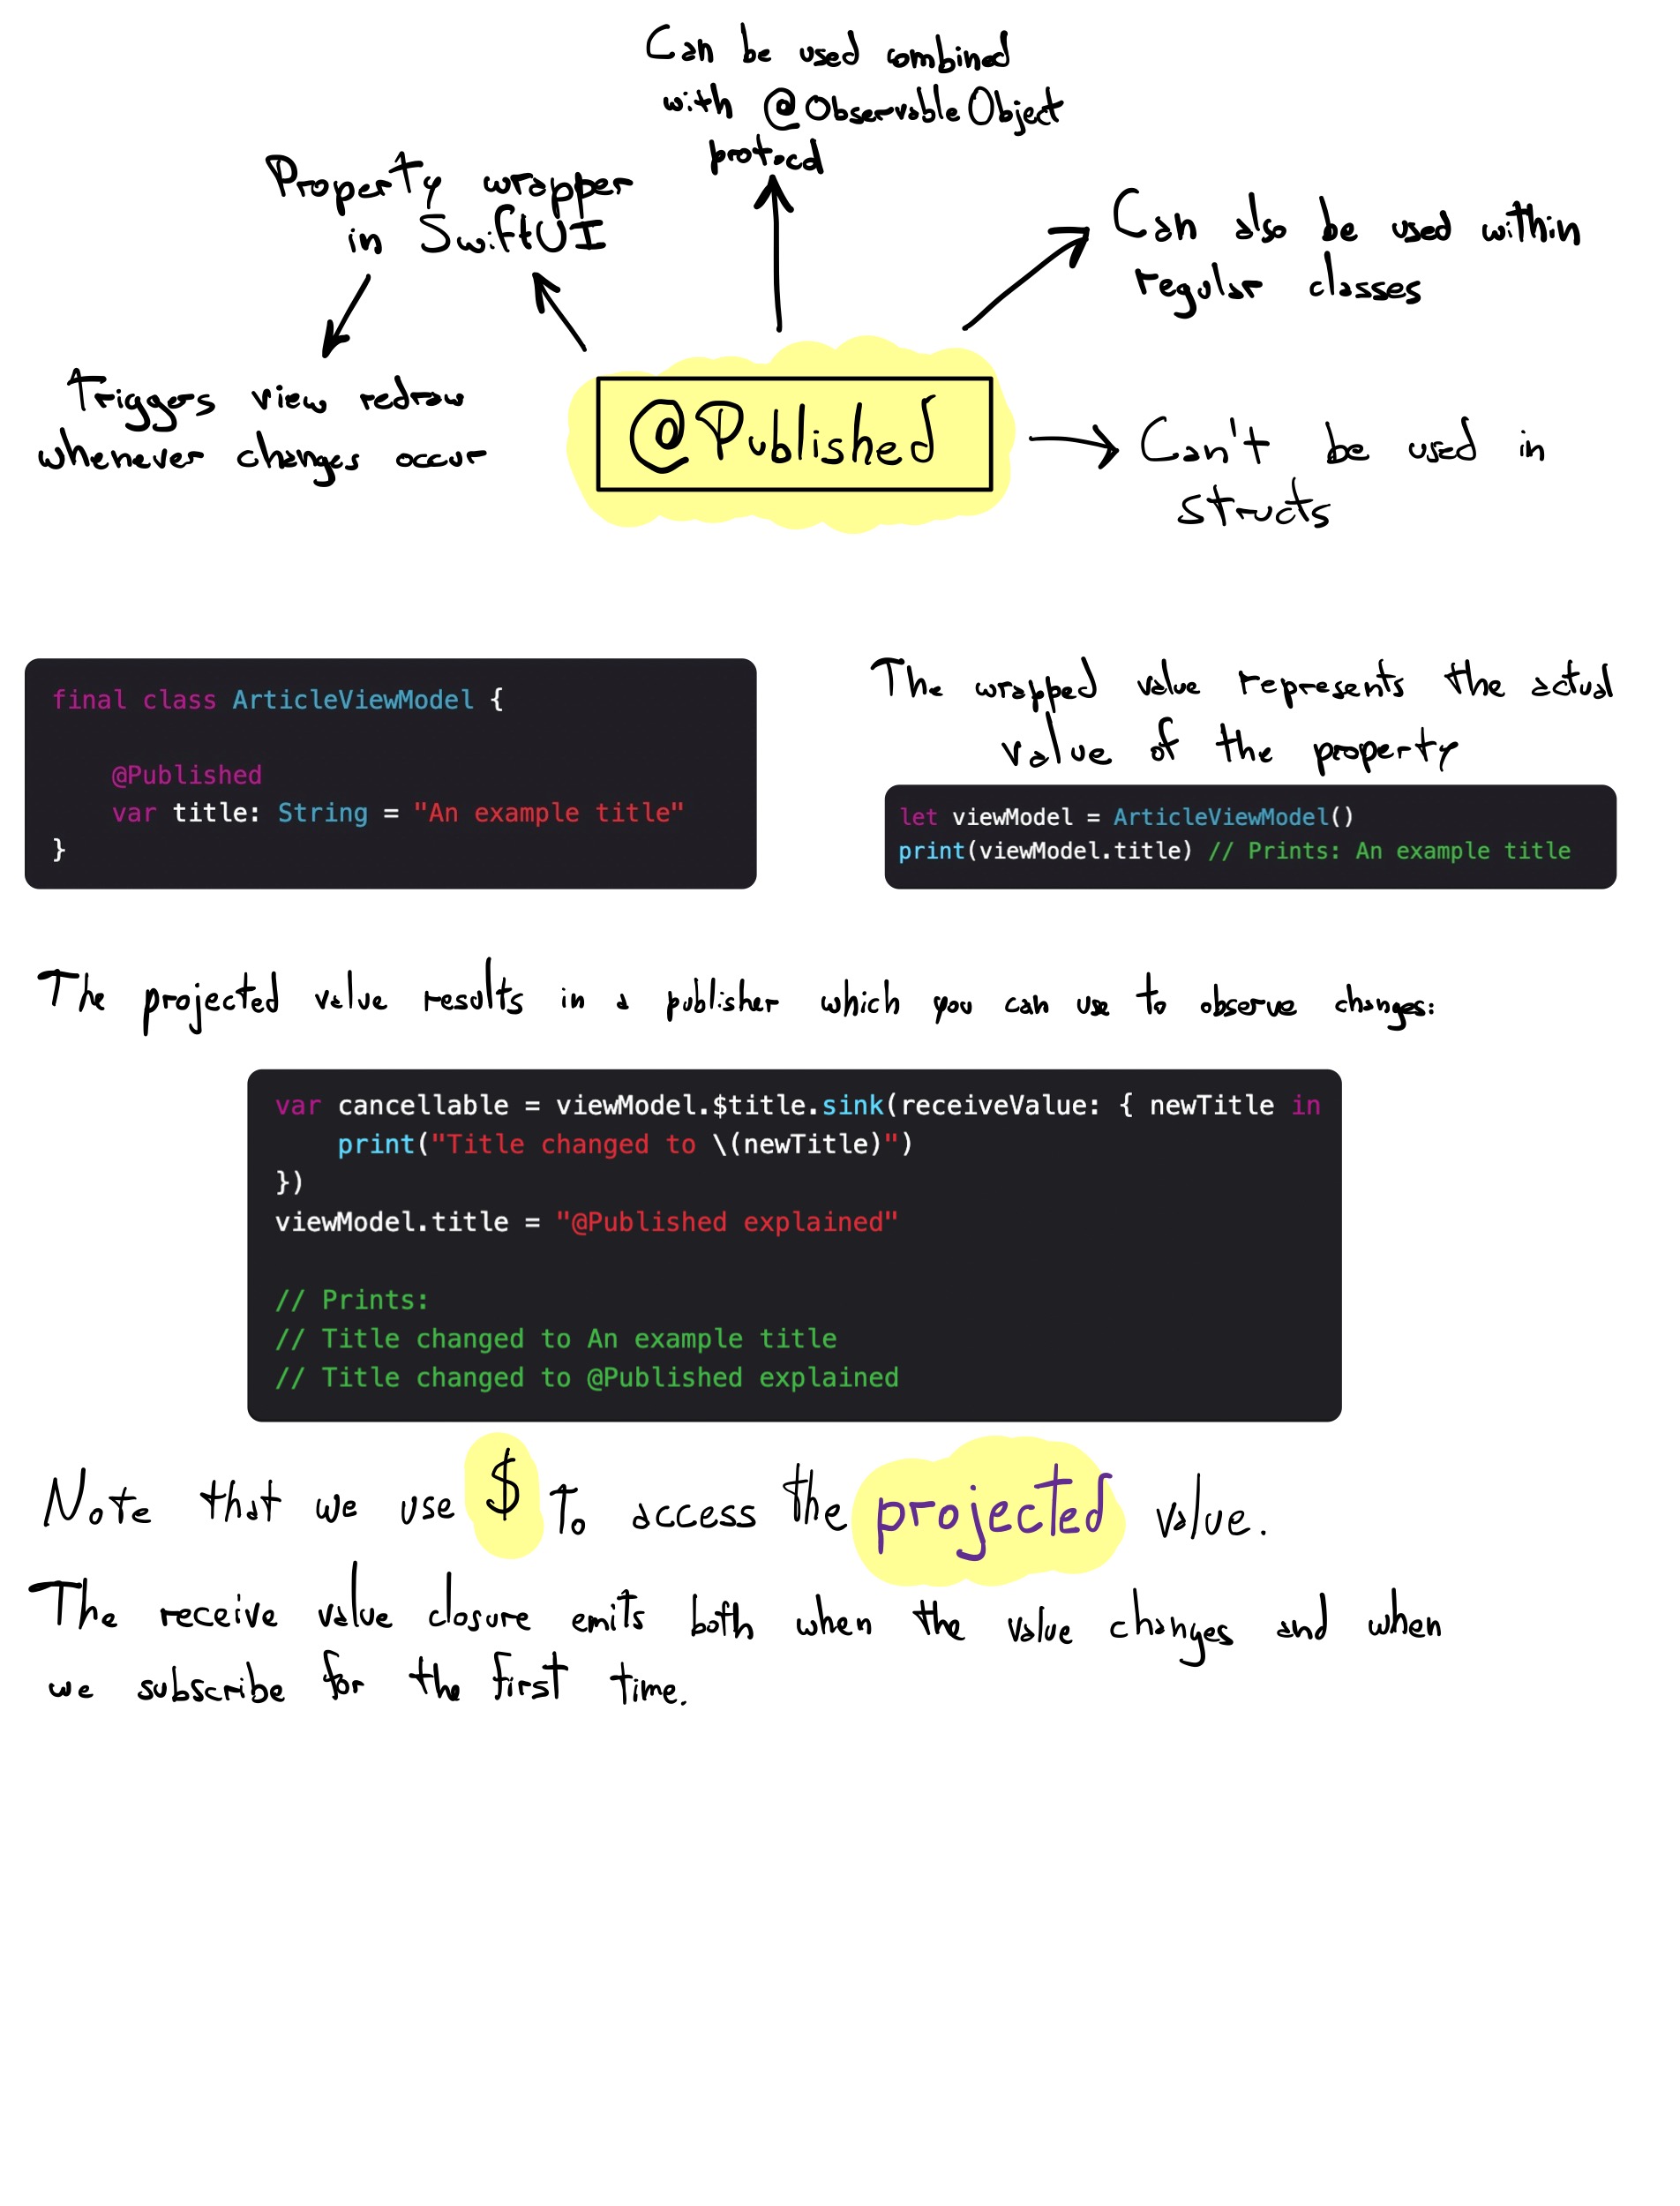 Can be used combined
with @ObservableObject
protocol
Property wrapper
in SwiftUI
Can also be used within
regular classes
Triggers view redraw
whenever changes occur
@Published
Can't be used in
structs
final class ArticleViewModel {
@Published
var title: String = "An example title"
}
The wrapped value represents the actual
value of the property
let viewModel = ArticleViewModel()
print(viewModel.title) // Prints: An example title
The projected value results in a publisher which you can use to observe changes:
var cancellable = viewModel.$title.sink(receiveValue: { newTitle in
print("Title changed to \(newTitle)")
})
viewModel.title = "@Published explained"
// Prints:
// Title changed to An example title
// Title changed to @Published explained
Note that we use $ to access the projected value.
The receive value closure emits both when the value changes and when
we subscribe for the first time.